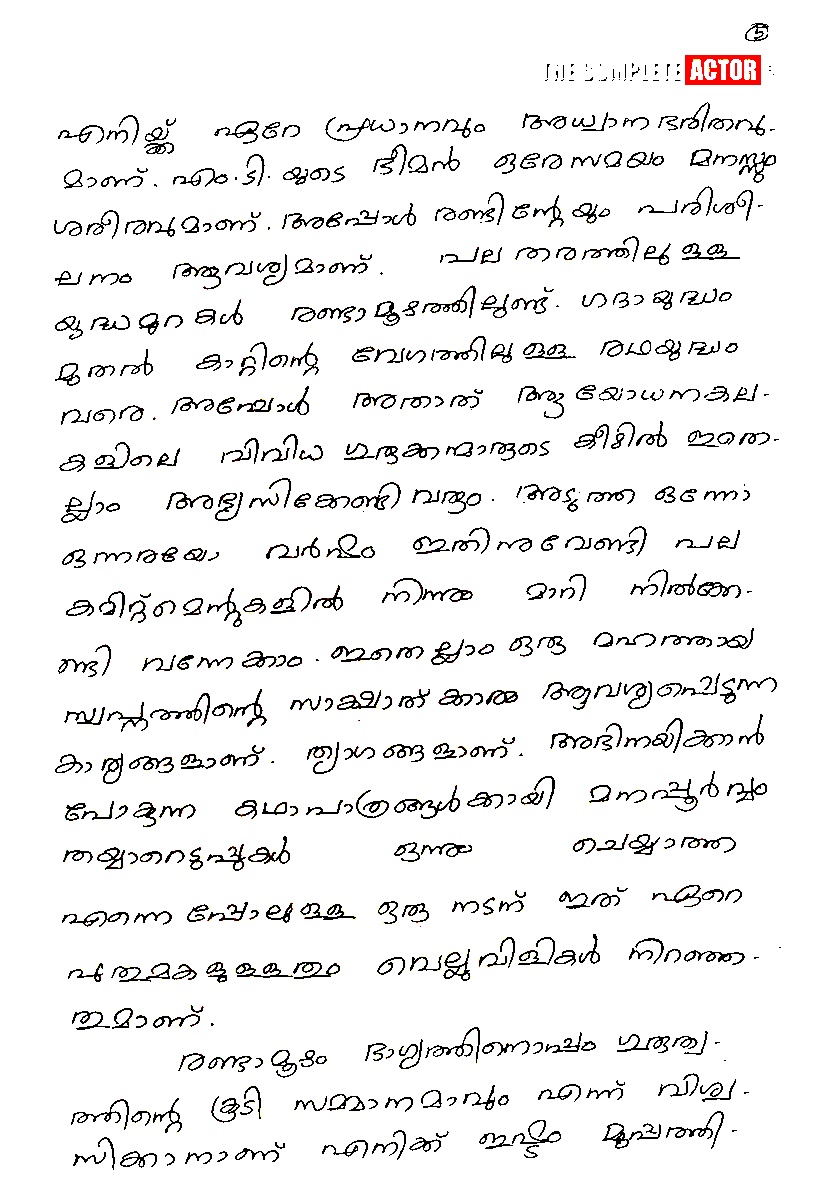 5
THE COMPLETE ACTOR
എനിയ്ക്ക് ഏറേ പ്രധാനവും അധ്വാന ഭരിതവു-
മാണ്. എം.ടി. യുടെ ഭീമൻ ഒരേ സമയം മനസ്സും
ശരീരവുമാണ്. അപ്പോൾ രണ്ടിന്റേയും പരിശീ-
ലനം ആവശ്യമാണ്. പല തരത്തിലുള്ള
യുദ്ധമുറകൾ രണ്ടാമൂഴത്തിലുണ്ട്. ഗദായുദ്ധം
മുതൽ കാറ്റിന്റെ വേഗത്തിലുള്ള രഥയുദ്ധം
വരെ. അപ്പോൾ അതാത് ആയോധനകല-
കളിലെ വിവിധ ഗുരുക്കന്മാരുടെ കീഴിൽ ഇതെ-
ല്ലാം അഭ്യസിക്കേണ്ടി വരും. അടുത്ത ഒന്നോ
ഒന്നരയോ വർഷം ഇതിനുവേണ്ടി പല
കമിറ്റ്മെന്റുകളിൽ നിന്നും മാറി നിൽക്കേ-
ണ്ടി വന്നേക്കാം. ഇതെല്ലാം ഒരു മഹത്തായ
സ്വപ്നത്തിന്റെ സാക്ഷാത്ക്കാരം ആവശ്യപ്പെടുന്ന
കാര്യങ്ങളാണ്. ത്യാഗങ്ങളാണ്. അഭിനയിക്കാൻ
പോകുന്ന കഥാപാത്രങ്ങൾക്കായി മനഃപ്പൂർവ്വം
തയ്യാറെടുപ്പുകൾ ഒന്നും ചെയ്യാത്ത
എന്നെ പ്പോലുള്ള ഒരു നടന് ഇത് ഏറെ
പുതുമകളുള്ളതും വെല്ലുവിളികൾ നിറഞ്ഞ-
തുമാണ്.
രണ്ടാമൂഴം ഭാഗ്യത്തിനൊപ്പം ഗുരുത്വ-
ത്തിന്റെ കൂടി സമ്മാനമാവും എന്ന് വിശ്വ-
സിക്കാനാണ് എനിക്ക് ഇഷ്ടം മുപ്പത്തി-